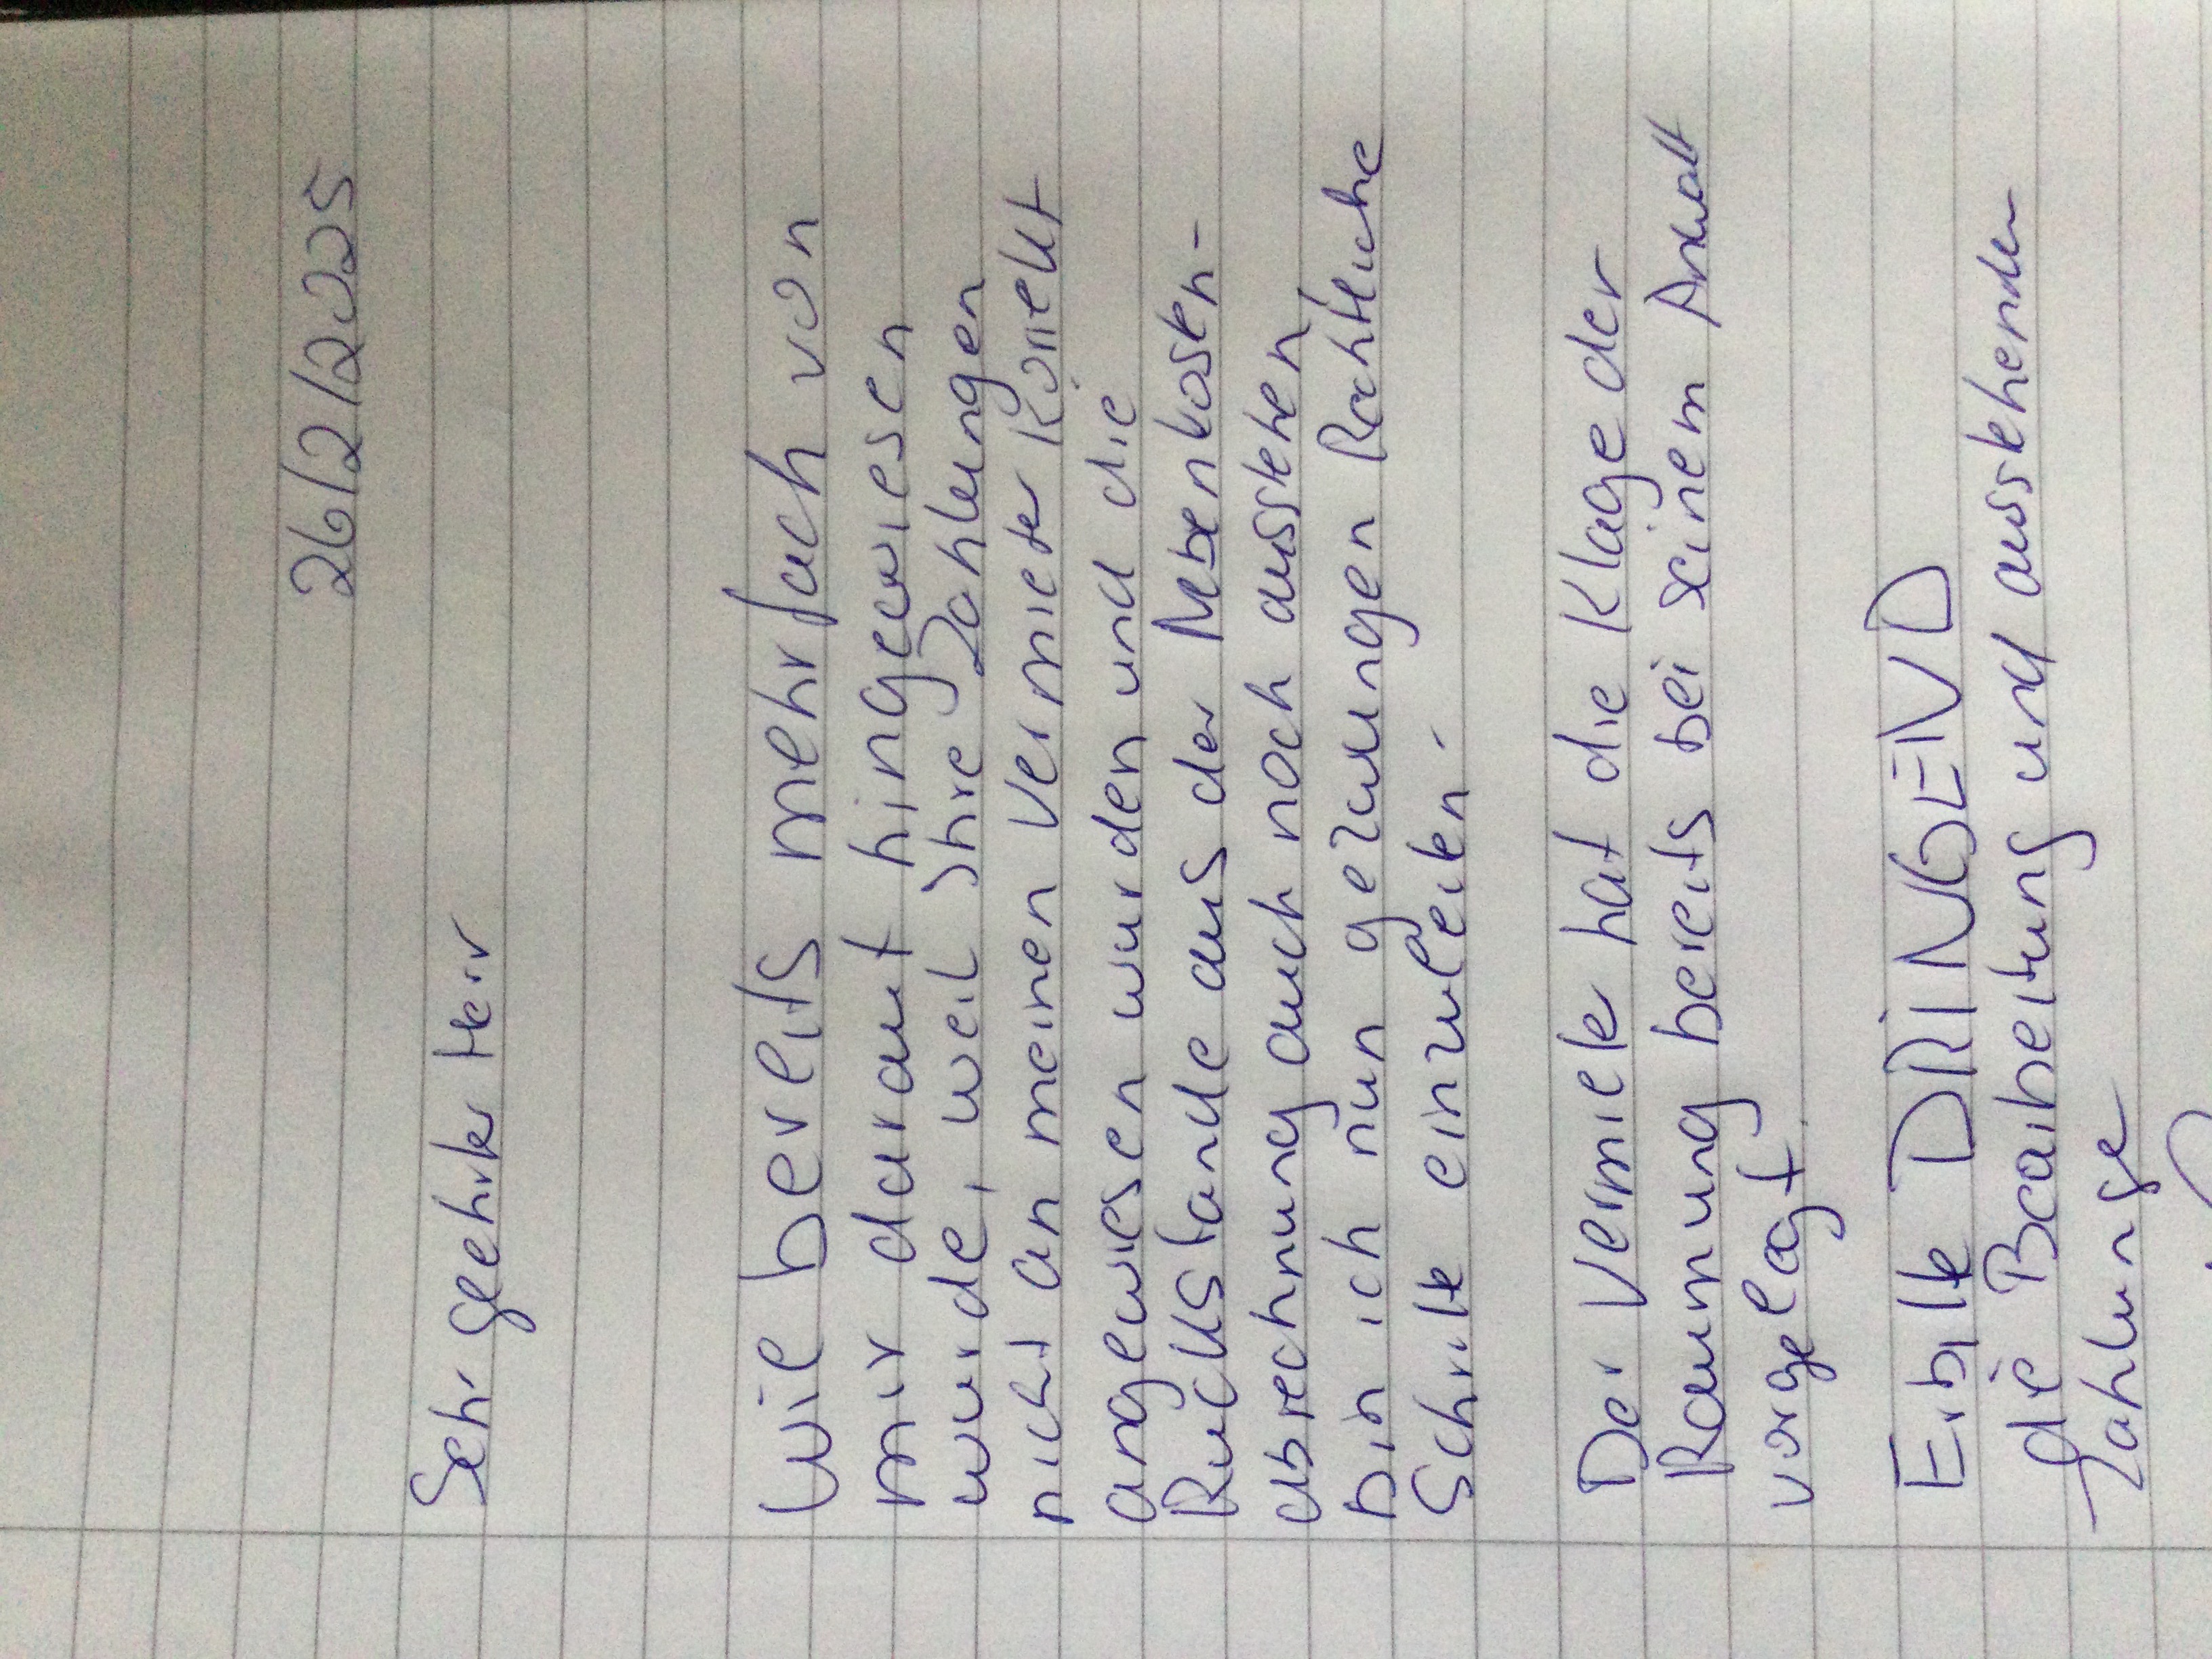 26/2/2025
Sehr geehrter Herr
Wie bereits mehrfach von
mir darauf hingewiesen
wurde, weil Ihre Zahlungen
nicht an meinen Vermieter korrekt
angewiesen wurden und die
Rückstände aus der Nebenkosten-
abrechnung auch noch ausstehen,
bin ich nun gezwungen Rechtliche
Schritte einzuleiten.
Der Vermieter hat die Klage der
Räumung bereits bei seinem Anwalt
vorgelegt.
Erbitte DRINGEND
die Bearbeitung und ausstehenden
Zahlunge